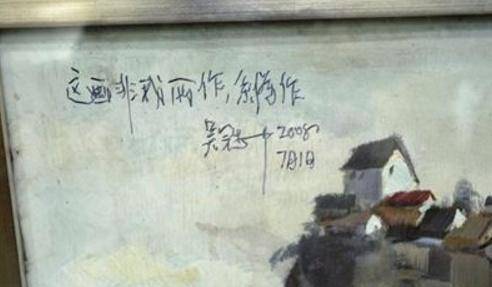 这画非我所作，系伪作
吴冠中 2008
7月1日